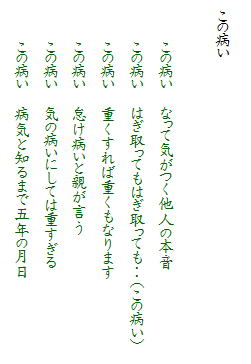 この病い
この病い　なって気がつく他人の本音
この病い　はぎ取ってもはぎ取っても‥(この病い)
この病い　重くすれば重くもなります
この病い　怠け病いと親が言う
この病い　気の病いにしては重すぎる
この病い　病気と知るまで五年の月日